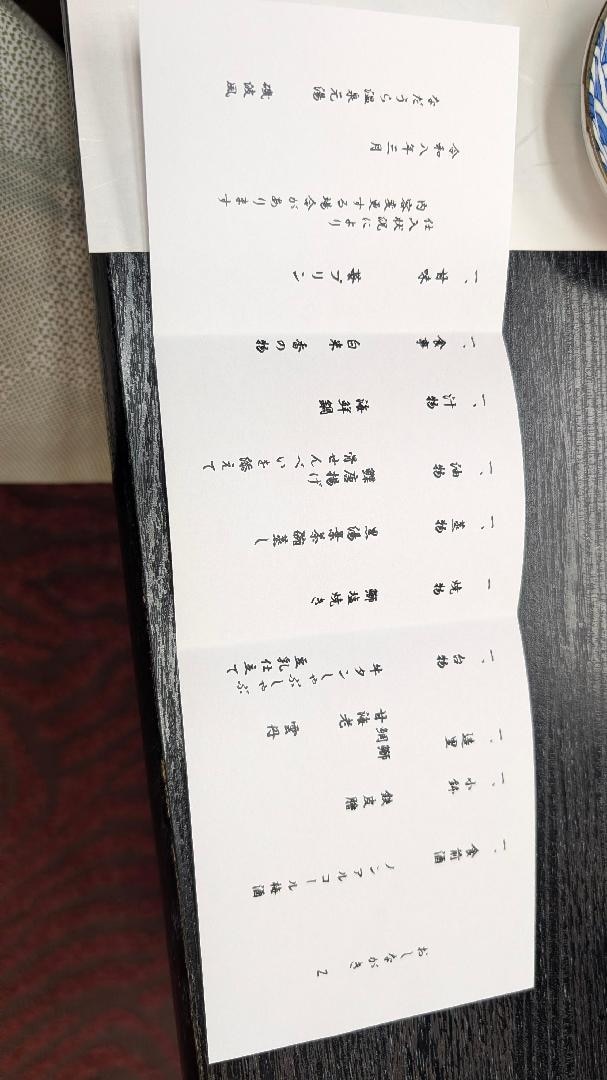 おしながき 2
一、食前酒
ノンアルコール梅酒
一、小鉢
鉄皮膾
一、造里
鰤
鯛 雲丹
甘海老
一、台物
牛タンしゃぶしゃぶ
豆乳仕立て
一 焼物
鰤塩焼き
一、蒸物
黒湯葉茶碗蒸し
一、油物
鰈唐揚げ
骨せんべいを添えて
一、汁物
海鮮鍋
一、食事
白米 香の物
一、甘味
苺プリン
仕入状況により
内容変更する場合があります
令和八年三月
なだうら温泉元湯
磯波風